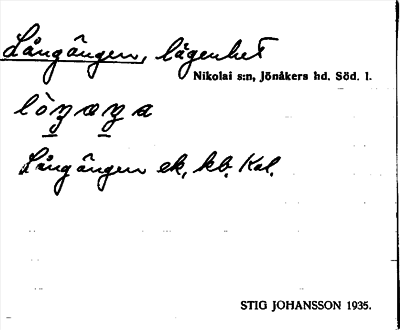 Långängen, lägenhet
Nikolai s:n, Jönåkers hd. Söd. l.
Långängen ek, kb. Kal.
STIG JOHANSSON 1935.